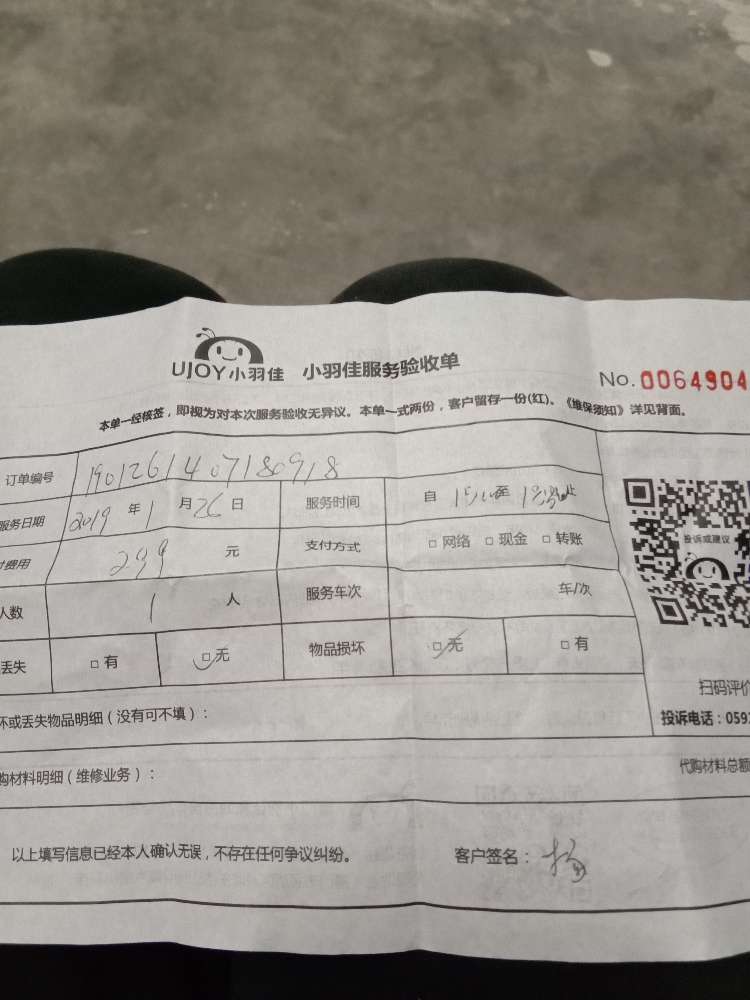 UJOY小羽佳 小羽佳服务验收单
No. 0064904
本单一经核签，即视为对本次服务验收无异议。本单一式两份，客户留存一份(红)、《维保须知》详见背面。
订单编号 1901261407180918
服务日期 2019 年 1 月 26 日 服务时间 自 至 止
费用 299 元 支付方式 □ 网络 □ 现金 □ 转账
人数 1 人 服务车次 车/次
丢失 □ 有 □ 无 物品损坏 □ 无 □ 有
投诉或建议
扫码评价
投诉电话：059
坏或丢失物品明细（没有可不填）：
购材料明细（维修业务）： 代购材料总额
以上填写信息已经本人确认无误，不存在任何争议纠纷。 客户签名： 杨